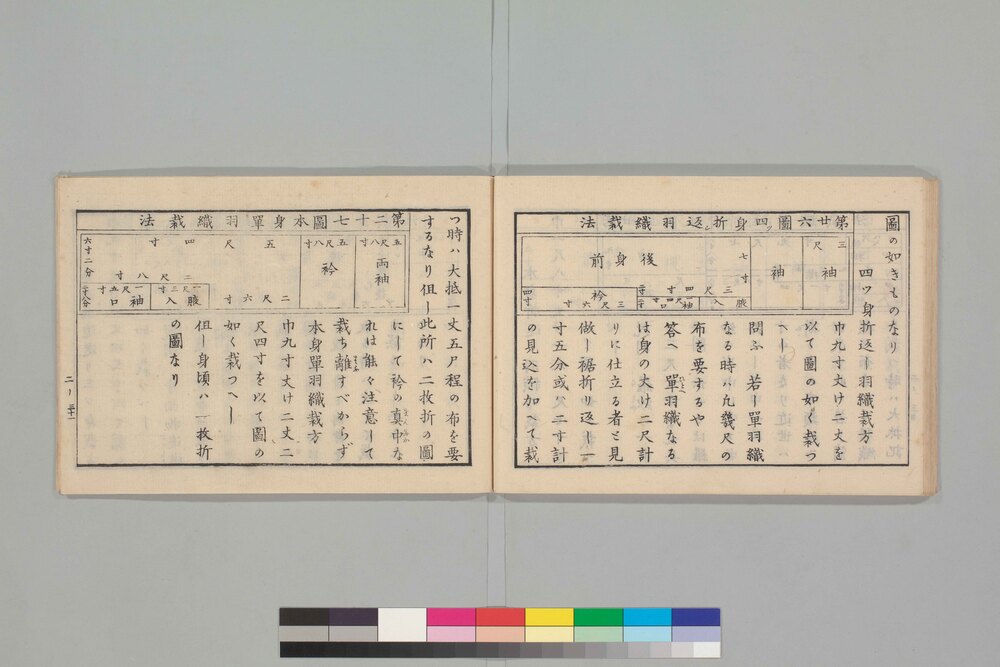 圖の如きものなり
第廿六圖四ツ身折返シ羽織裁法
三尺
袖
袖
七寸
後身前
三尺四寸
脇入
袖口
衽
三尺六寸
四寸
四ツ身折返し羽織裁方
巾九寸丈け二丈を
以て圖の如く裁つ
べし
問ふ 若し單羽織
なる時ハ凢幾尺の
布を要するや
答へ 單羽織なる
は身の大け二尺計
りに仕立る者と見
做し裾折り返し一
寸五分或ハ二寸計
の見込を加へて裁
つ時ハ大抵一丈五尺程の布を要
するなり但し此所ハ二枚折の圖
第二十七圖本身單羽織裁法
五尺八寸
両袖
五尺八寸
衿
五尺四寸
二尺八寸
六寸二分
脇入
袖口
二尺六寸
にして衿の真中な
れは能々注意して
裁ち離すべからず
本身單羽織裁方
巾九寸丈け二丈二
尺四寸を以て圖の
如く裁つべし
但し身頃ハ一枚折
の圖なり